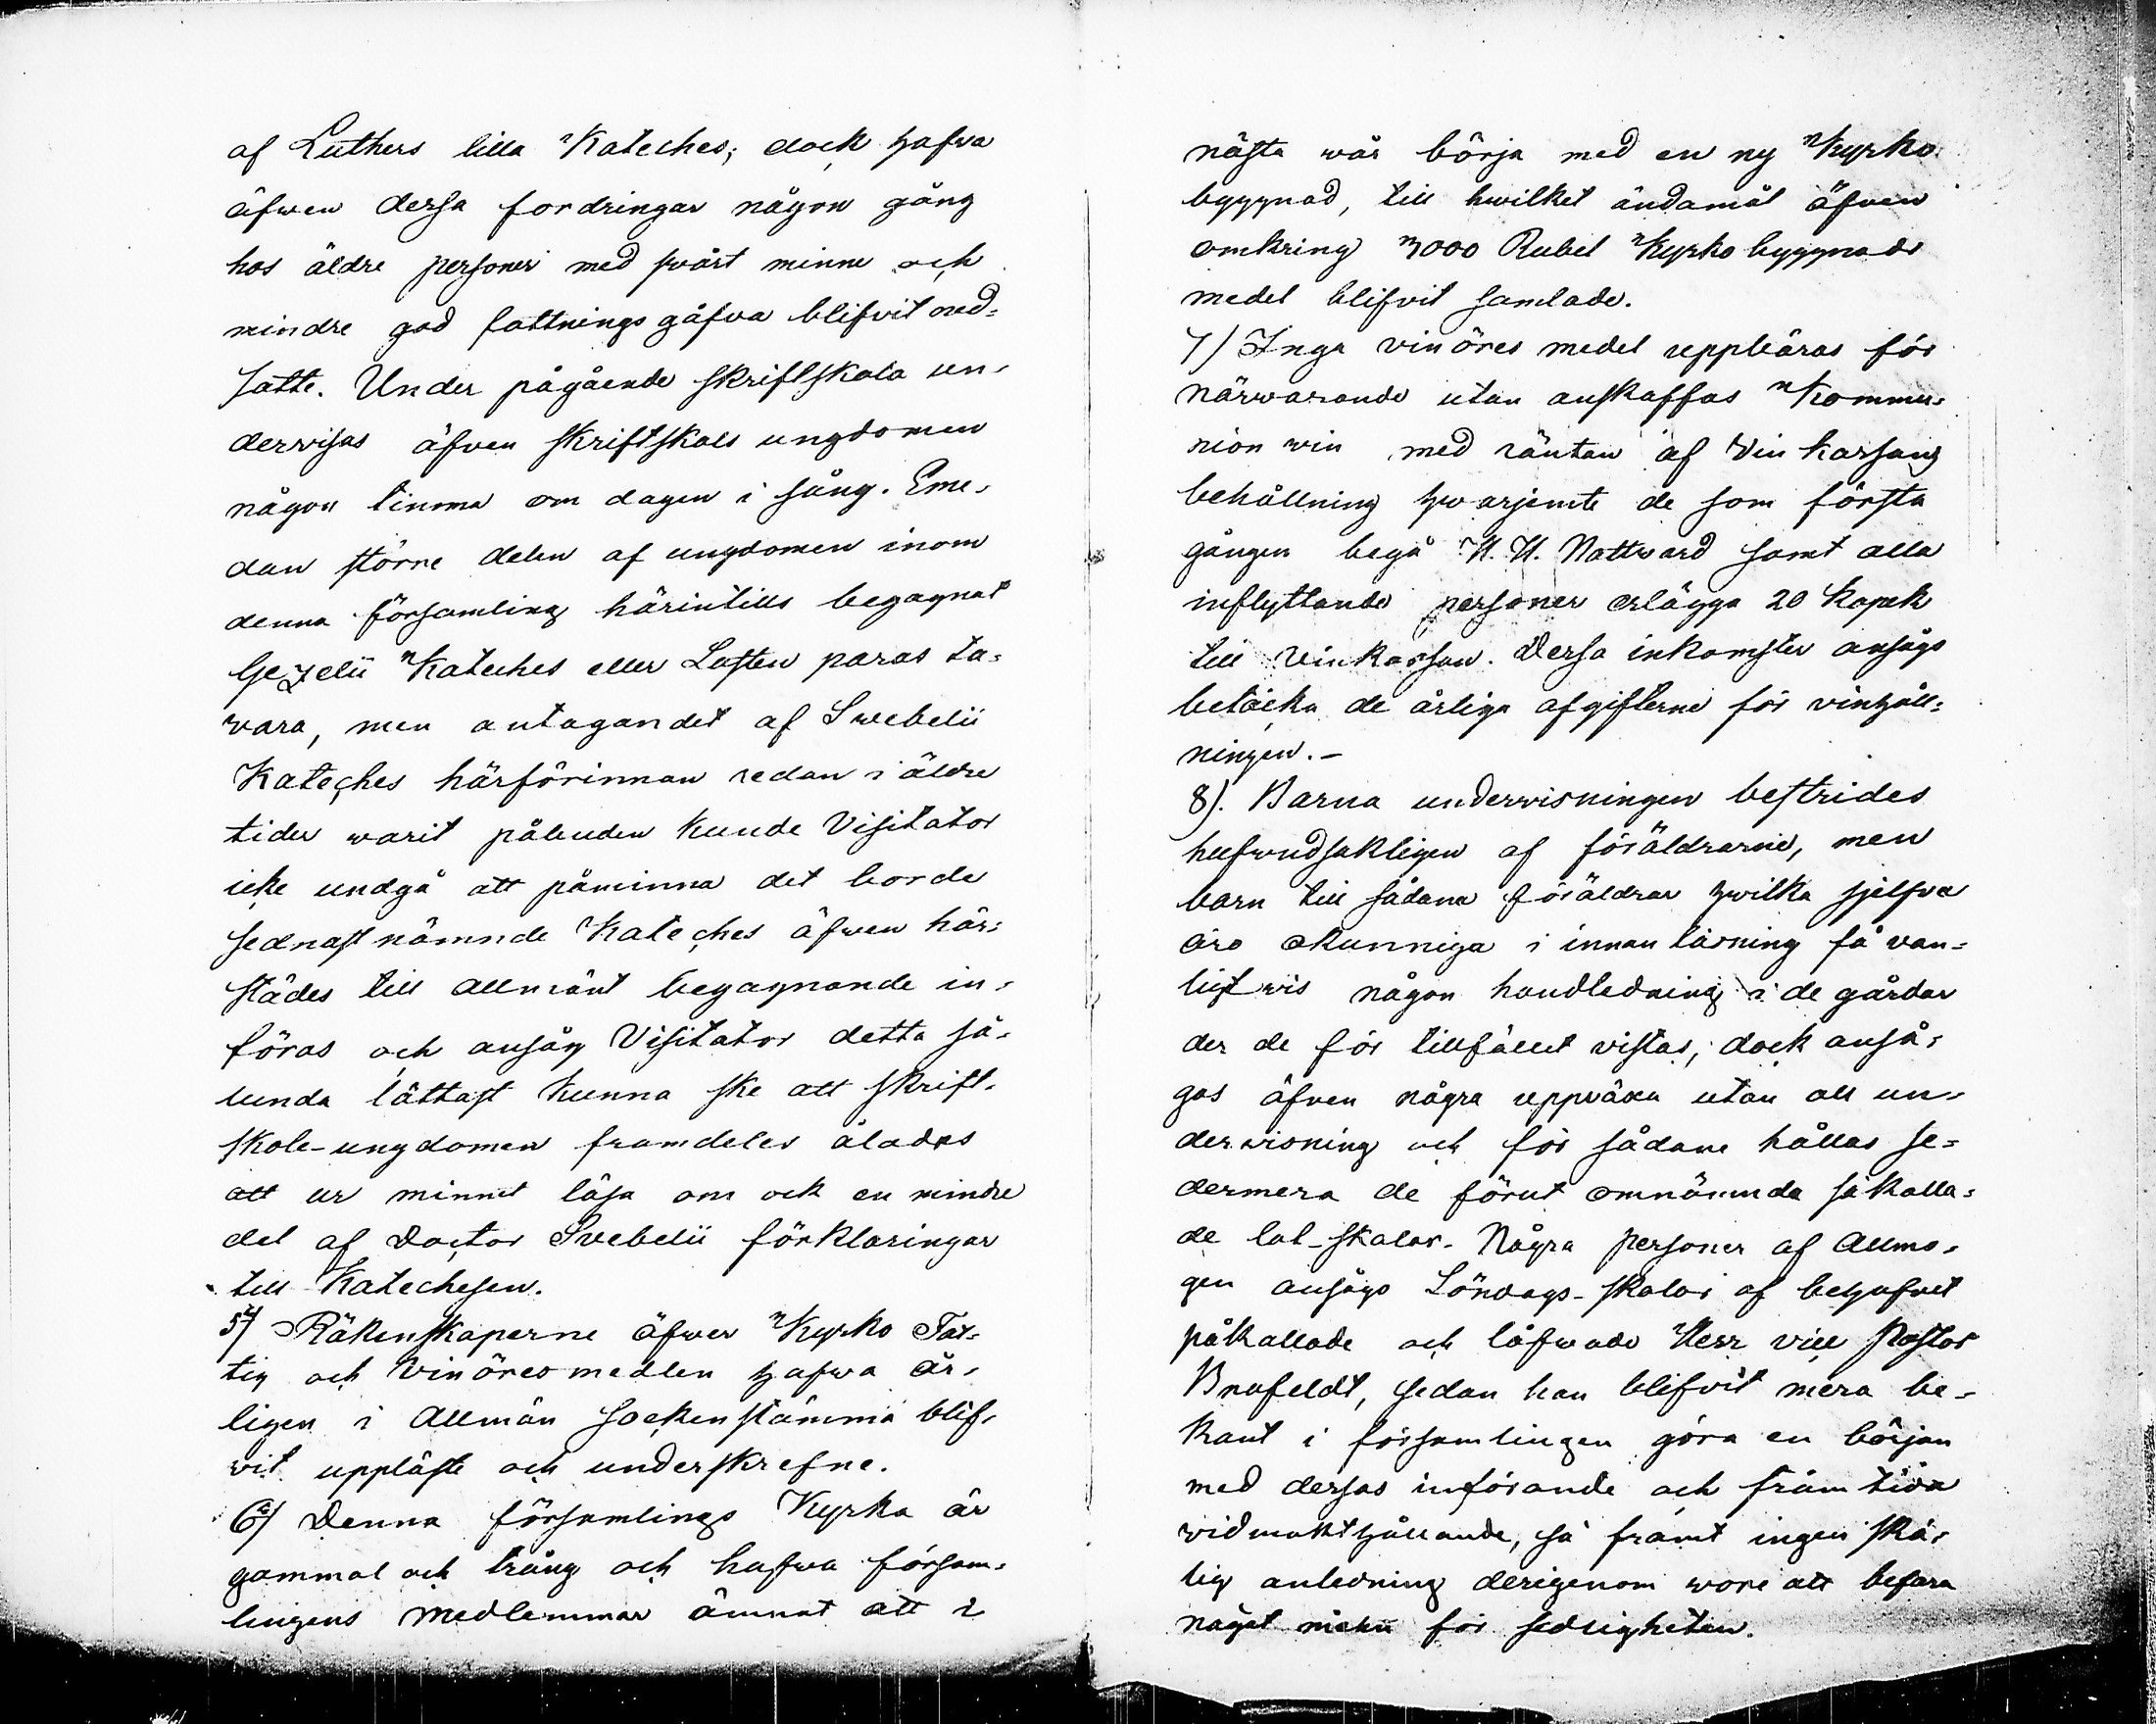 af Luthers lilla Kateches; dock hafva
äfwen dessa fordringar någon gång
hos äldre personer med svårt minne och
mindre god fattnings gåfva blifvit ned-
satte. Under pågående skriftskola un-
dervisas äfven skriftskols ungdomen
någon timma om dagen i sång. Eme-
dan större delen af ungdomen inom
denna församling härintills begagnat
Gezelii Kateches eller Lasten paras ta-
vara, men antagandet af Swebelii
Kateches härförinnan redan i äldre
tider warit påbuden kunde Visitator
icke undgå att påminna det borde
sednast nämnde Kateches äfwen här-
städes till allmänt begagnande in-
föras och ansåg Visitator detta så-
lunda lättast kunna ske att skrift-
skole-ungdomen framdeles ålades
att ur minnet läsa om ock en mindre
del af Doctor Svebelii förklaringar
till Katechesen.
5) Räkenskaperne öfwer Kyrko Fat-
tig och Vinöresmedlen hafwa år-
ligen i Allmän Sockenstämma blif-
vit uppläste och underskrefne.
6) Denna församlings Kyrka är
gammal och trång och hafwa försam-
lingens medlemmar ämnat att i
nästa vår börja med en ny Kyrko
byggnad, till hwilket ändamål äfven
omkring 3000 Rubel Kyrko byggnads
medel blifvit samlade.
7) Inga vinöres medel uppbäras för
närwarande utan anskaffas Kommu-
nion win med räntan af Vin kassans
behållning hwarjemte de som första
gången begå H. H. Nattward samt alla
inflyttande personer erlägga 20 Kopek
till Vinkassan. Dessa inkomster ansågs
betäcka de årliga afgifterne för vinhåll-
ningen.-
8). Barna underwisningen bestrides
hufwudsakligen af föräldrarne, men
barn till sådana föräldrar hwilka sjelfva
äro okunniga i innan läsning få van-
ligtvis någon handledning i de gårdar
der de för tillfället vistas; dock anså-
gos äfven några uppväxa utan all un-
derwisning och för sådane hållas se-
dermera de förut omnämnda så kalla-
de lal-skolor. Några personer af Allmo-
gen ansågo Söndags-skolor af behofvet
påkallade och låfwade Herr vice Pastor
Brofeldt, sedan han blifvit mera be-
kant i församlingen göra en början
med dessas införande och framtida
widmakthållande, så framt ingen skä-
lig anledning derigenom wore att befara
något men för sedligheten.